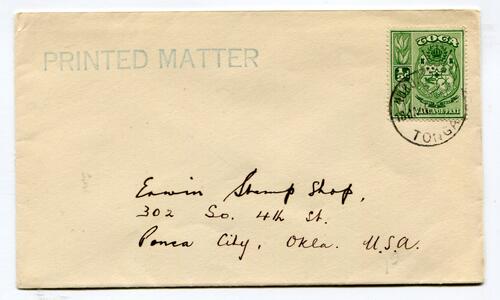 PRINTED MATTER
TOGA
½d
TONGA
Erwin Stamp Shop,
302 So. 4th St.
Ponca City, Okla. U.S.A.